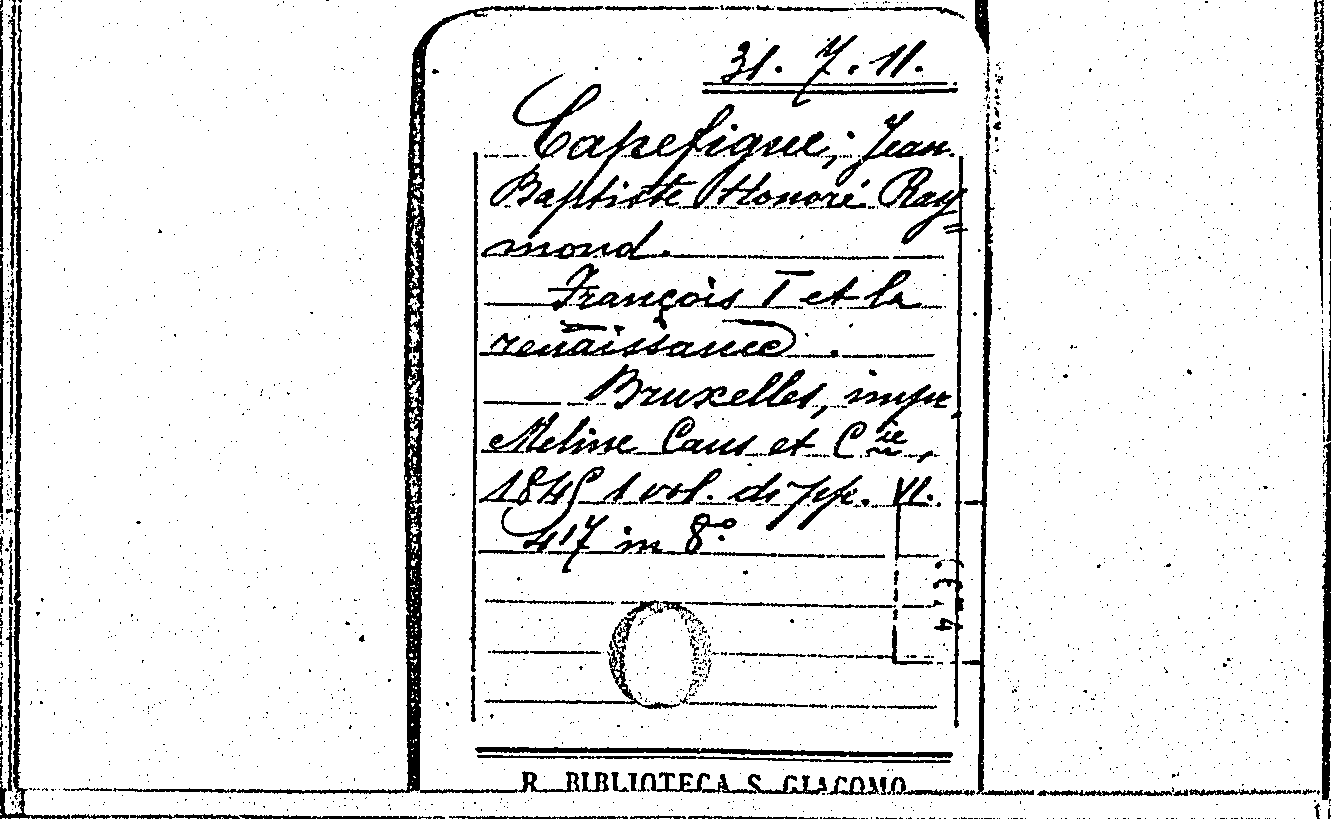 31. 7. 11.
Capefigue, Jean
Baptiste Honoré Ray=
mond.
François I et la
renaissance.
Bruxelles, impr.
Meline Caus et Cie,
1845 1 vol. di pp. VI.
417 in 8°
R. BIBLIOTECA S. GIACOMO